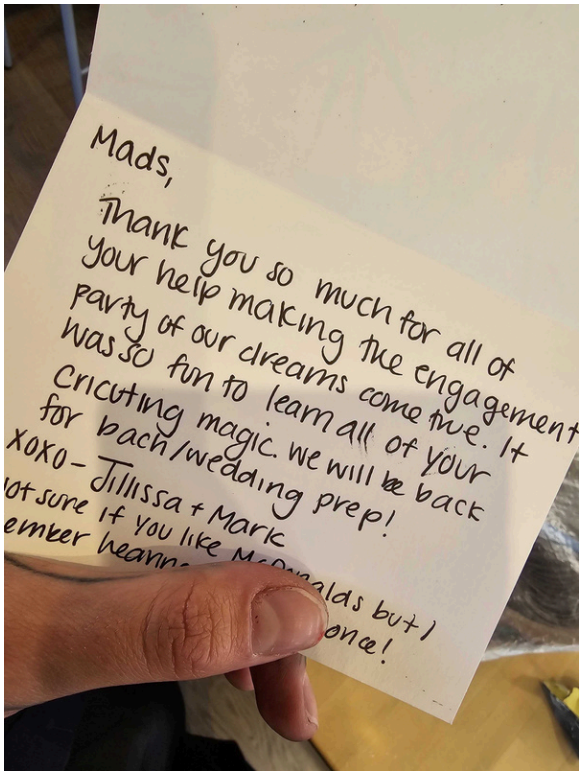 Mads,
Thank you so much for all of
your help making the engagement
party of our dreams come true. It
was so fun to learn all of your
cricuting magic. We will be back
for bach/wedding prep!
XOXO - Jillissa + Mark
sure if you like McDonalds but I
hearing once!